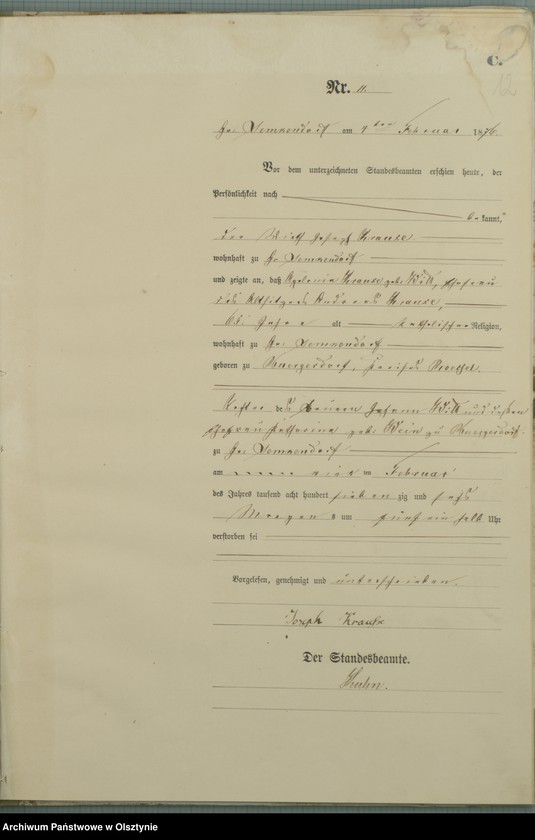 C.
12
Nr. 11.
Gr. Lemkendorf am 9ten Februar 1876.
Vor dem unterzeichneten Standesbeamten erschien heute, der
Persönlichkeit nach
bekannt,
der Wirth Joseph Krause
wohnhaft zu Gr. Lemkendorf
und zeigte an, daß Apolonia Krause geb. Wilk, Ehefrau
des Altsitzers Andreas Krause,
Jahre alt katholischer Religion,
wohnhaft zu Gr. Lemkendorf
geboren zu Kreises Roessel
Tochter des Bauern Johann Wilk und dessen
Ehefrau Catharina geb. Wein zu
zu Gr. Lemkendorf
am ten Februar
des Jahres tausend acht hundert siebenzig und sechs
Morgens um fünf ein halb Uhr
verstorben sei
Vorgelesen, genehmigt und unterschrieben.
Joseph Krause
Der Standesbeamte.
Kuhn.
Archiwum Państwowe w Olsztynie